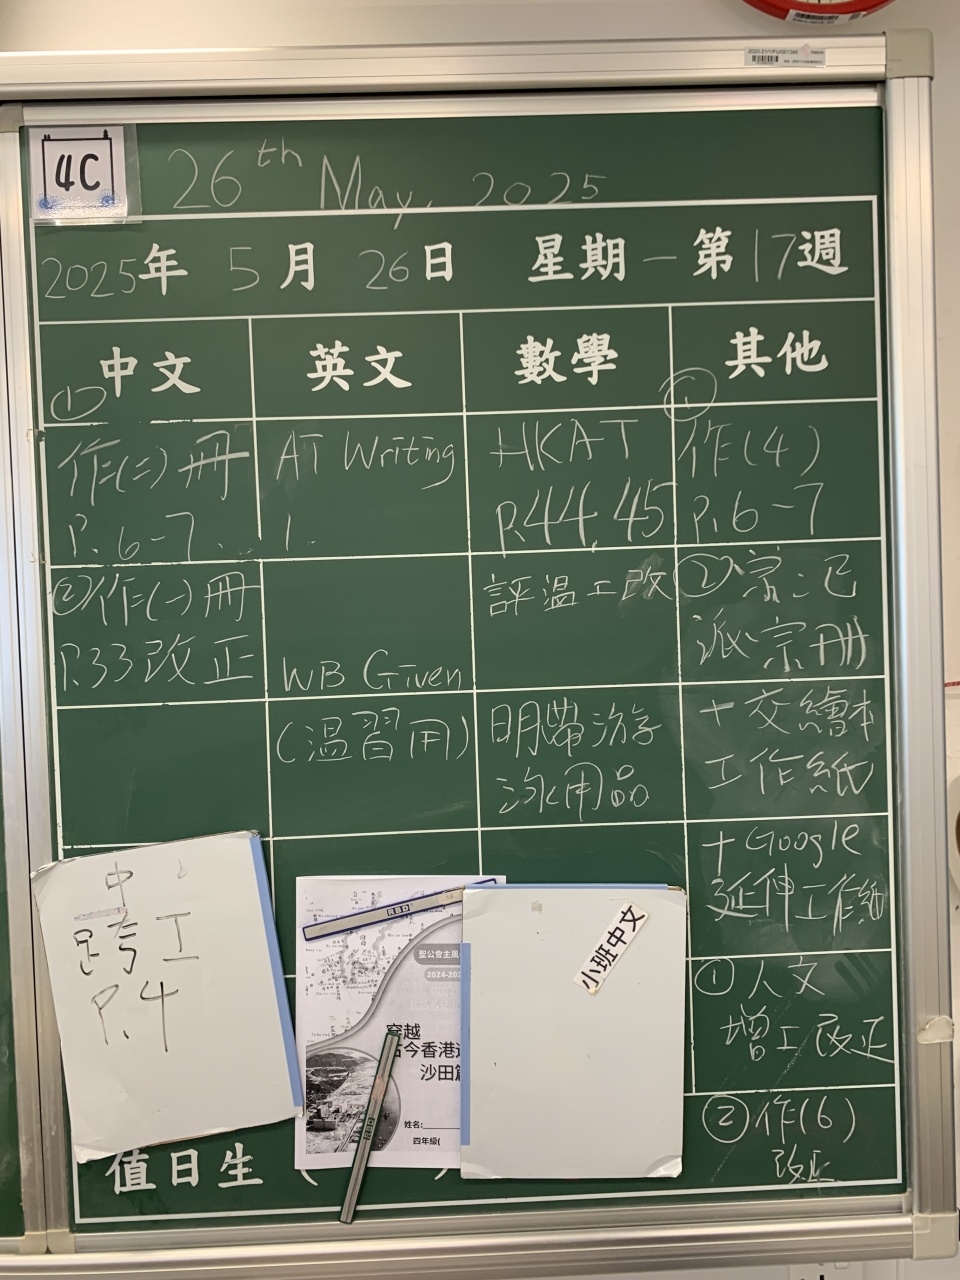 4C
26th May, 2025
2025年 5月 26日 星期一 第17週
中文 英文 數學 其他
① 作(二)冊
P. 6-7.
② 作(一)冊
P.33改正
AT Writing
1.
WB Given
(温習用)
HKAT
P.44, 45
評温工改
明帶游
泳用品
① 作(4)
P. 6-7
② 宗:已
派宗冊
+交繪本
工作紙
+Google
延伸工作紙
① 人文
增工改正
② 作(6)
改正
中
跨工
P.4
RBD
聖公會主風
2024-202
穿越
古今香港
沙田篇
姓名:
四年級(
小班中文
值日生 (